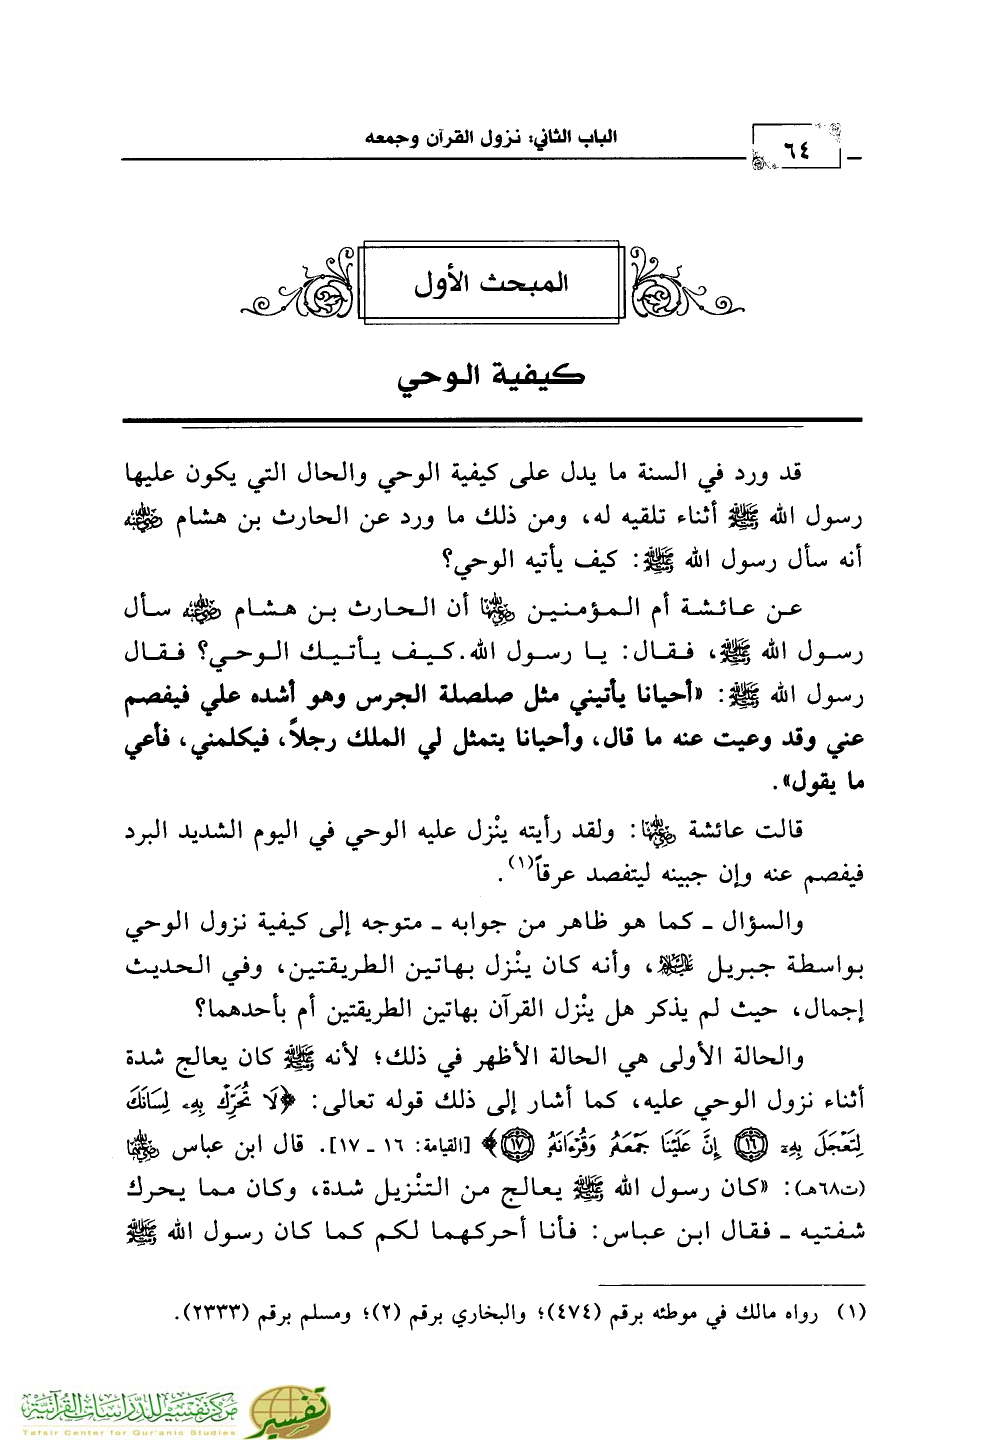 ٦٤
الباب الثاني: نزول القرآن وجمعه
المبحث الأول
كيفية الوحي
قد ورد في السنة ما يدل على كيفية الوحي والحال التي يكون عليها
رسول الله ﷺ أثناء تلقيه له، ومن ذلك ما ورد عن الحارث بن هشام رضي الله عنه
أنه سأل رسول الله ﷺ: كيف يأتيه الوحي؟
عن عائشة أم المؤمنين رضي الله عنها أن الحارث بن هشام رضي الله عنه سأل
رسول الله ﷺ، فقال: يا رسول الله. كيف يأتيك الوحي؟ فقال
رسول الله ﷺ: «أحيانا يأتيني مثل صلصلة الجرس وهو أشده علي فيفصم
عني وقد وعيت عنه ما قال، وأحيانا يتمثل لي الملك رجلاً، فيكلمني، فأعي
ما يقول».
قالت عائشة رضي الله عنها: ولقد رأيته ينْزل عليه الوحي في اليوم الشديد البرد
فيفصم عنه وإن جبينه ليتفصد عرقاً(١).
والسؤال ـ كما هو ظاهر من جوابه ـ متوجه إلى كيفية نزول الوحي
بواسطة جبريل عليه السلام، وأنه كان ينْزل بهاتين الطريقتين، وفي الحديث
إجمال، حيث لم يذكر هل ينْزل القرآن بهاتين الطريقتين أم بأحدهما؟
والحالة الأولى هي الحالة الأظهر في ذلك؛ لأنه ﷺ كان يعالج شدة
أثناء نزول الوحي عليه، كما أشار إلى ذلك قوله تعالى: ﴿لَا تُحَرِّكْ بِهِۦ لِسَانَكَ
لِتَعْجَلَ بِهِۦٓ ١٦ إِنَّ عَلَيْنَا جَمْعَهُۥ وَقُرْءَانَهُۥ ١٧﴾ [القيامة: ١٦ ـ ١٧]. قال ابن عباس رضي الله عنهما
(ت٦٨هـ): «كان رسول الله ﷺ يعالج من التنْزيل شدة، وكان مما يحرك
شفتيه ـ فقال ابن عباس: فأنا أحركهما لكم كما كان رسول الله ﷺ
(١) رواه مالك في موطئه برقم (٤٧٤)؛ والبخاري برقم (٢)؛ ومسلم برقم (٢٣٣٣).
مركز تفسير للدراسات القرآنية
Tafsir Center for Qur'anic Studies
تفسير